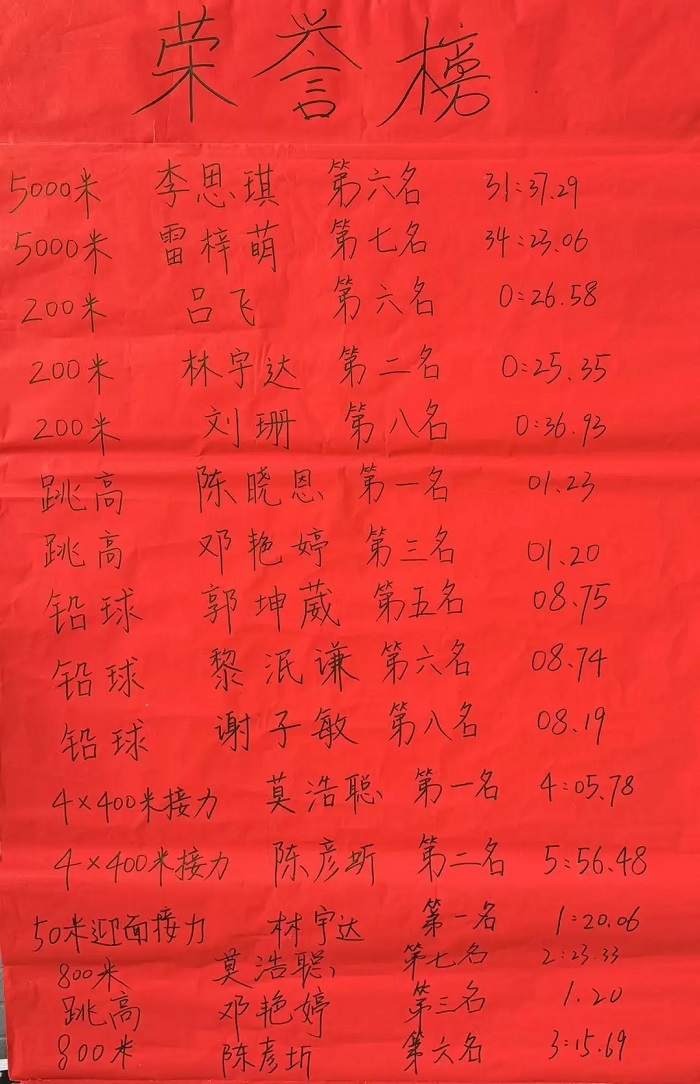 荣誉榜
5000米 李思琪 第六名 31:37.29
5000米 雷梓萌 第七名 34:23.06
200米 吕飞 第六名 0:26.58
200米 林宇达 第二名 0:25.35
200米 刘珊 第八名 0:36.93
跳高 陈晓恩 第一名 01.23
跳高 邓艳婷 第三名 01.20
铅球 郭坤葳 第五名 08.75
铅球 黎泯谦 第六名 08.74
铅球 谢子敏 第八名 08.19
4×400米接力 莫浩聪 第一名 4:05.78
4×400米接力 陈彦圻 第二名 5:56.48
50米迎面接力 林宇达 第一名 1:20.06
800米 莫浩聪 第七名 2:23.33
跳高 邓艳婷 第三名 1.20
800米 陈彦圻 第六名 3:15.69